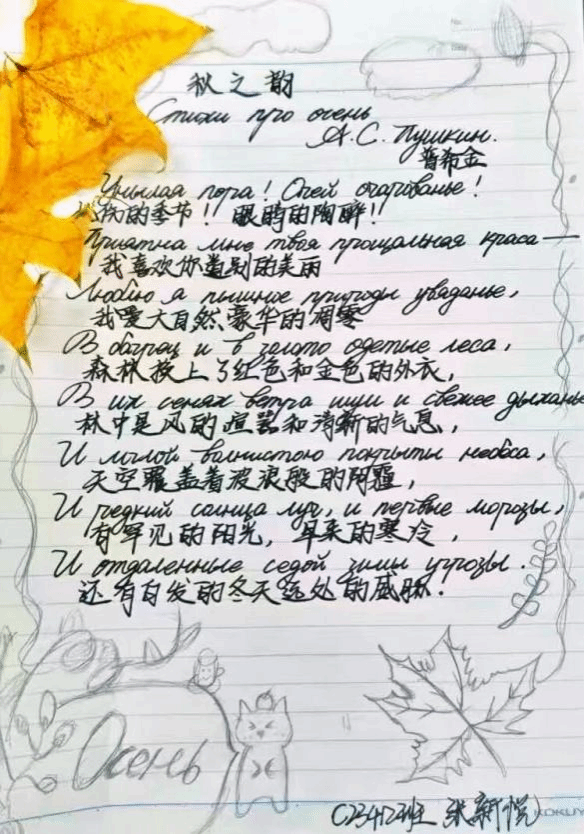 秋之韵
Стихи про осень
А.С. Пушкин.
普希金
Унылая пора! Очей очарованье!
的季节!! 眼睛的陶醉!!
Приятна мне твоя прощальная краса—
我喜欢你道别的美丽
Люблю я пышное природы увяданье,
我爱大自然豪华的凋零
В багрец и в золото одетые леса,
森林披上了红色和金色的外衣,
В их сенях ветра шум и свежее дыханье
林中是风的喧嚣和清新的气息,
И мглой волнистою покрыты небеса,
天空覆盖着波浪般的阴霾,
И редкий солнца луч, и первые морозы,
有罕见的阳光, 早来的寒冷,
И отдаленные седой зимы угрозы.
还有白发的冬天远处的威胁.
Осень
C23412班 张新悦
KOKUY